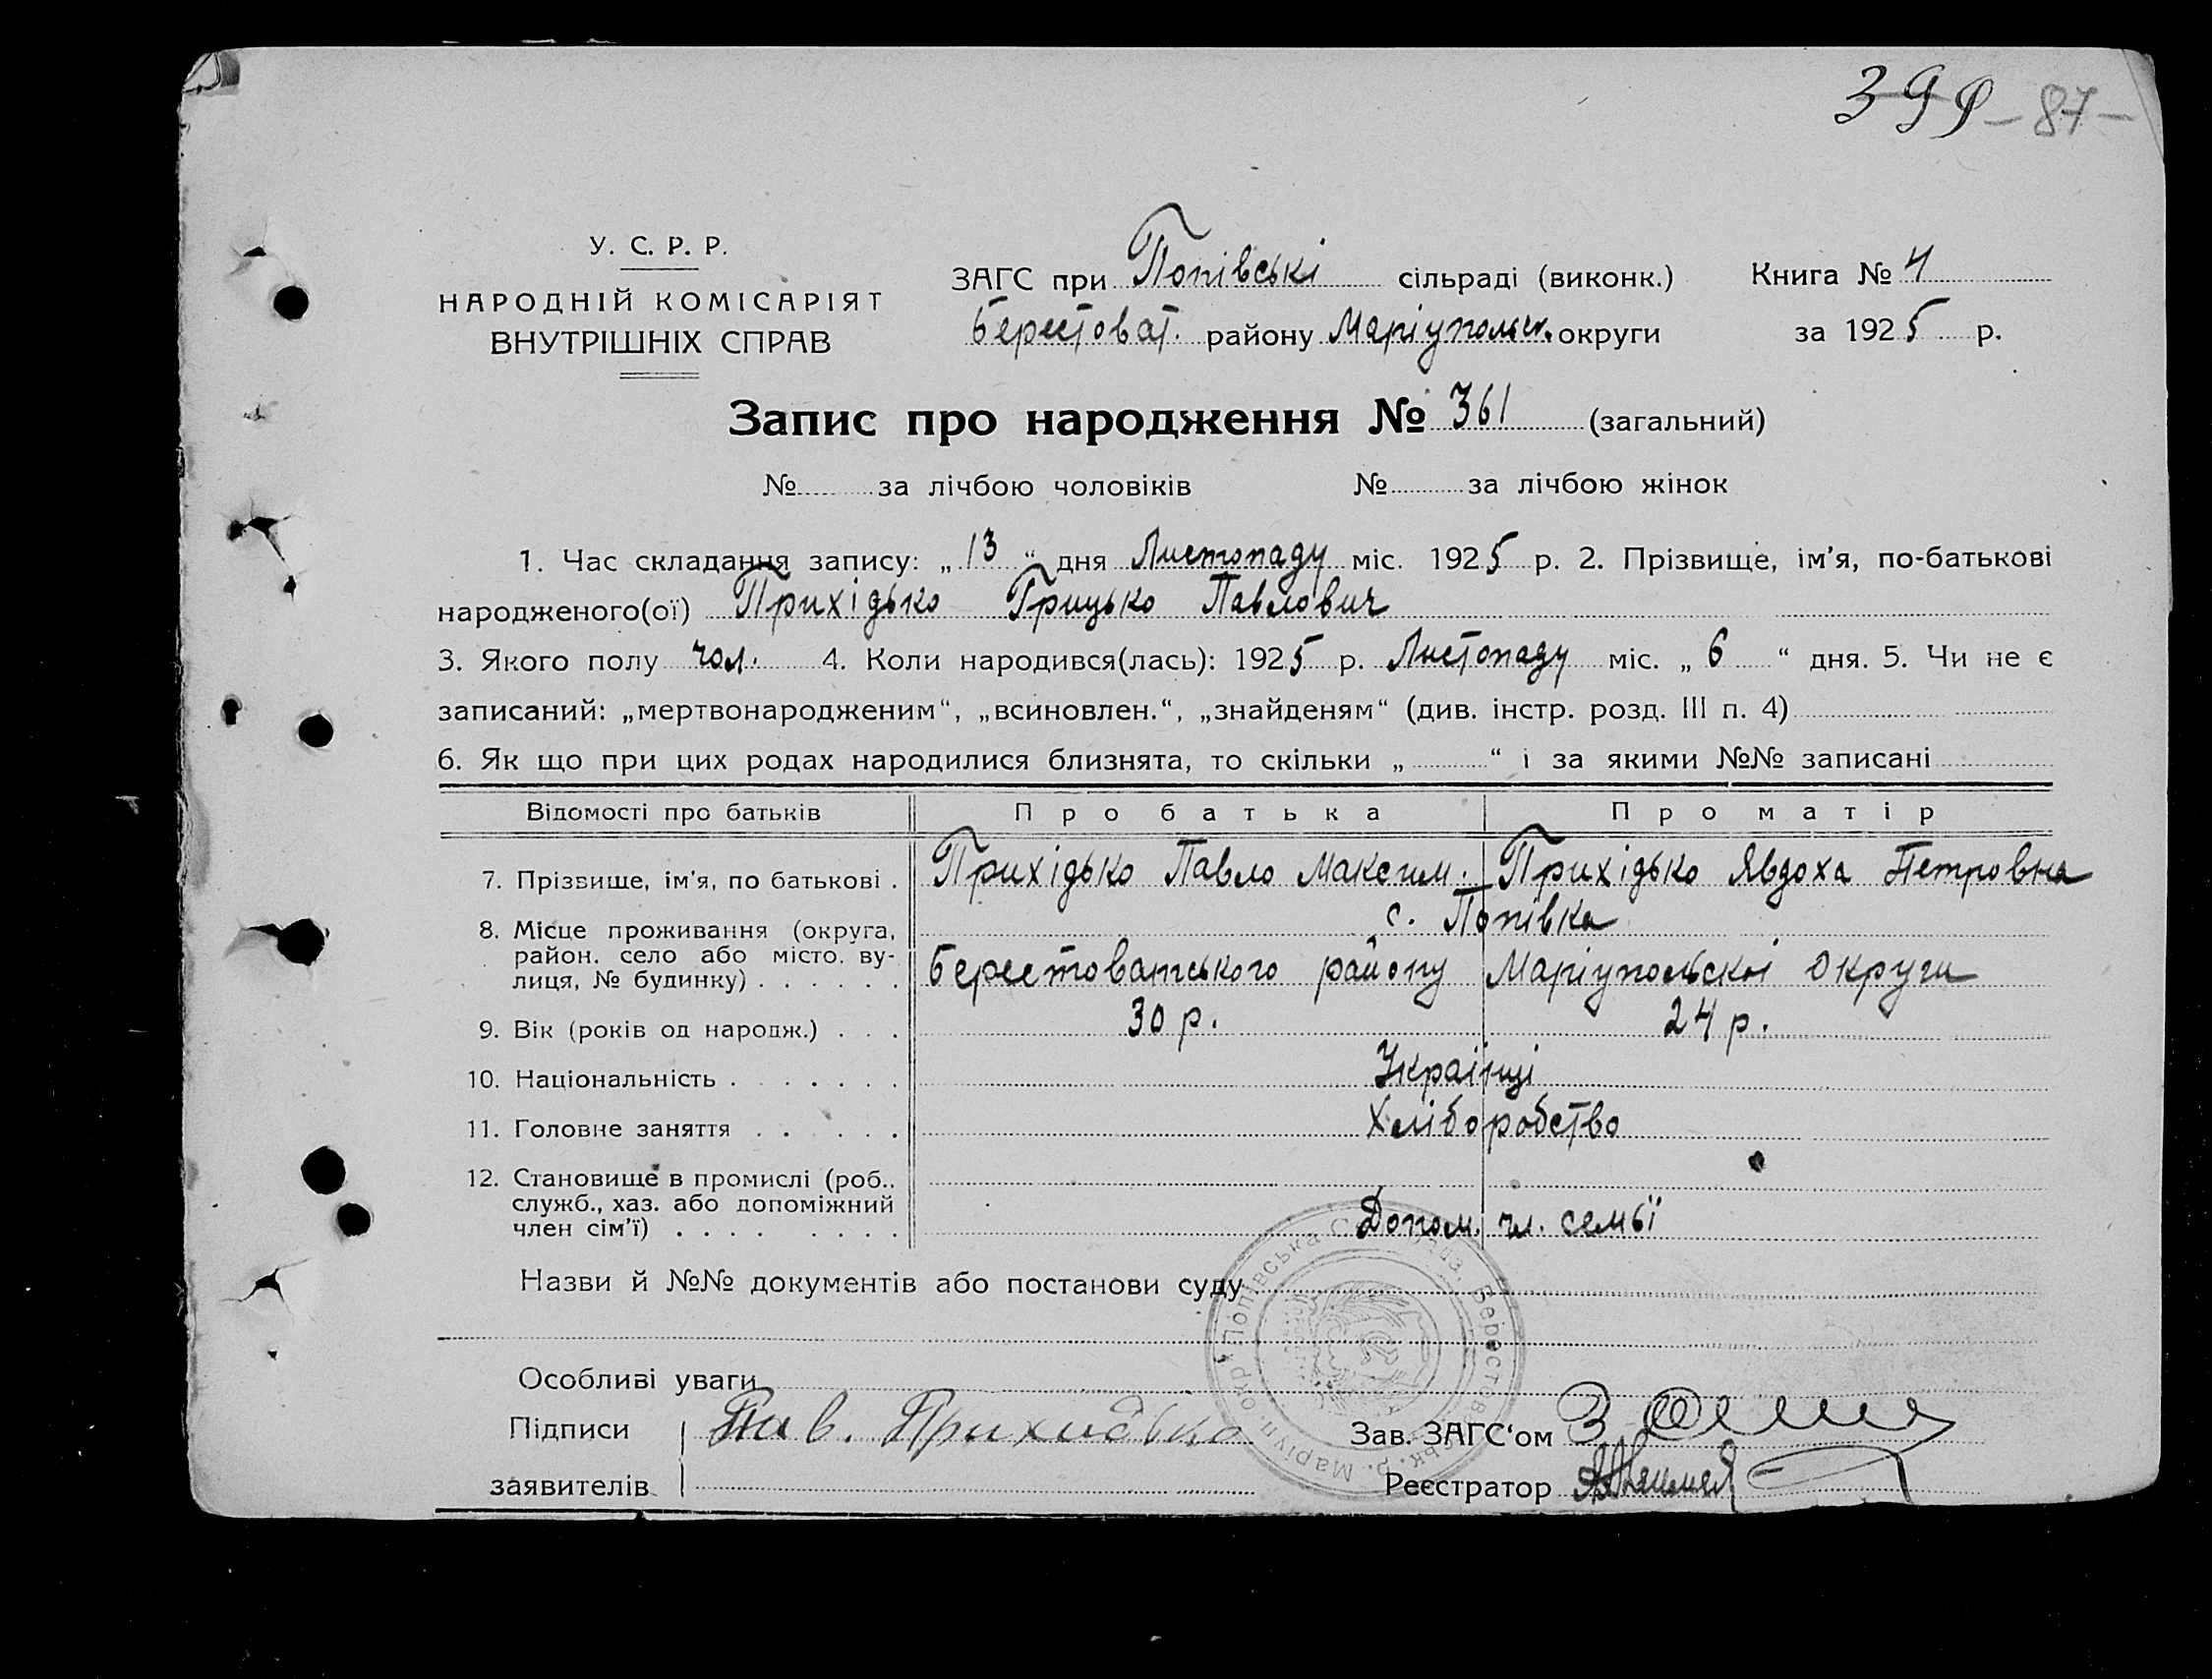 39 - 87 -
У. С. Р. Р.
НАРОДНІЙ КОМІСАРІЯТ
ВНУТРІШНІХ СПРАВ
ЗАГС при Попівські сільраді (виконк.) Книга № 4
Берестоват. району Маріупольск. округи за 1925 р.
Запис про народження № 361 (загальний)
№ за лічбою чоловіків № за лічбою жінок
1. Час складання запису: „13“ дня Листопаду міс. 1925 р. 2. Прізвище, ім'я, по-батькові
народженого(ої) Прихідько Грицько Павлович
3. Якого полу чол. 4. Коли народився(лась): 1925 р. Листопаду міс. „6“ дня. 5. Чи не є
записаний: „мертвонародженим“, „всиновлен.“, „знайденям“ (див. інстр. розд. III п. 4)
6. Як що при цих родах народилися близнята, то скільки „ “ і за якими №№ записані
Відомості про батьків Про батька Про матір
7. Прізвище, ім'я, по батькові . Прихідько Павло Максим. Прихідько Явдоха Петровна
8. Місце проживання (округа, район. село або місто. вулиця, № будинку) с. Попівка
Берестоватського району Маріупольскої округи
9. Вік (років од народж.) 30 р. 24 р.
10. Національність Українці
11. Головне заняття Хліборобство
12. Становище в промислі (роб.. служб., хаз. або допоміжний член сім'ї) Допом. чл. семьї
Назви й №№ документів або постанови суду
Особливі уваги
Підписи Пав. Приходько Зав. ЗАГС'ом
заявителів Реєстратор
Попівська
Маріуп. окр.